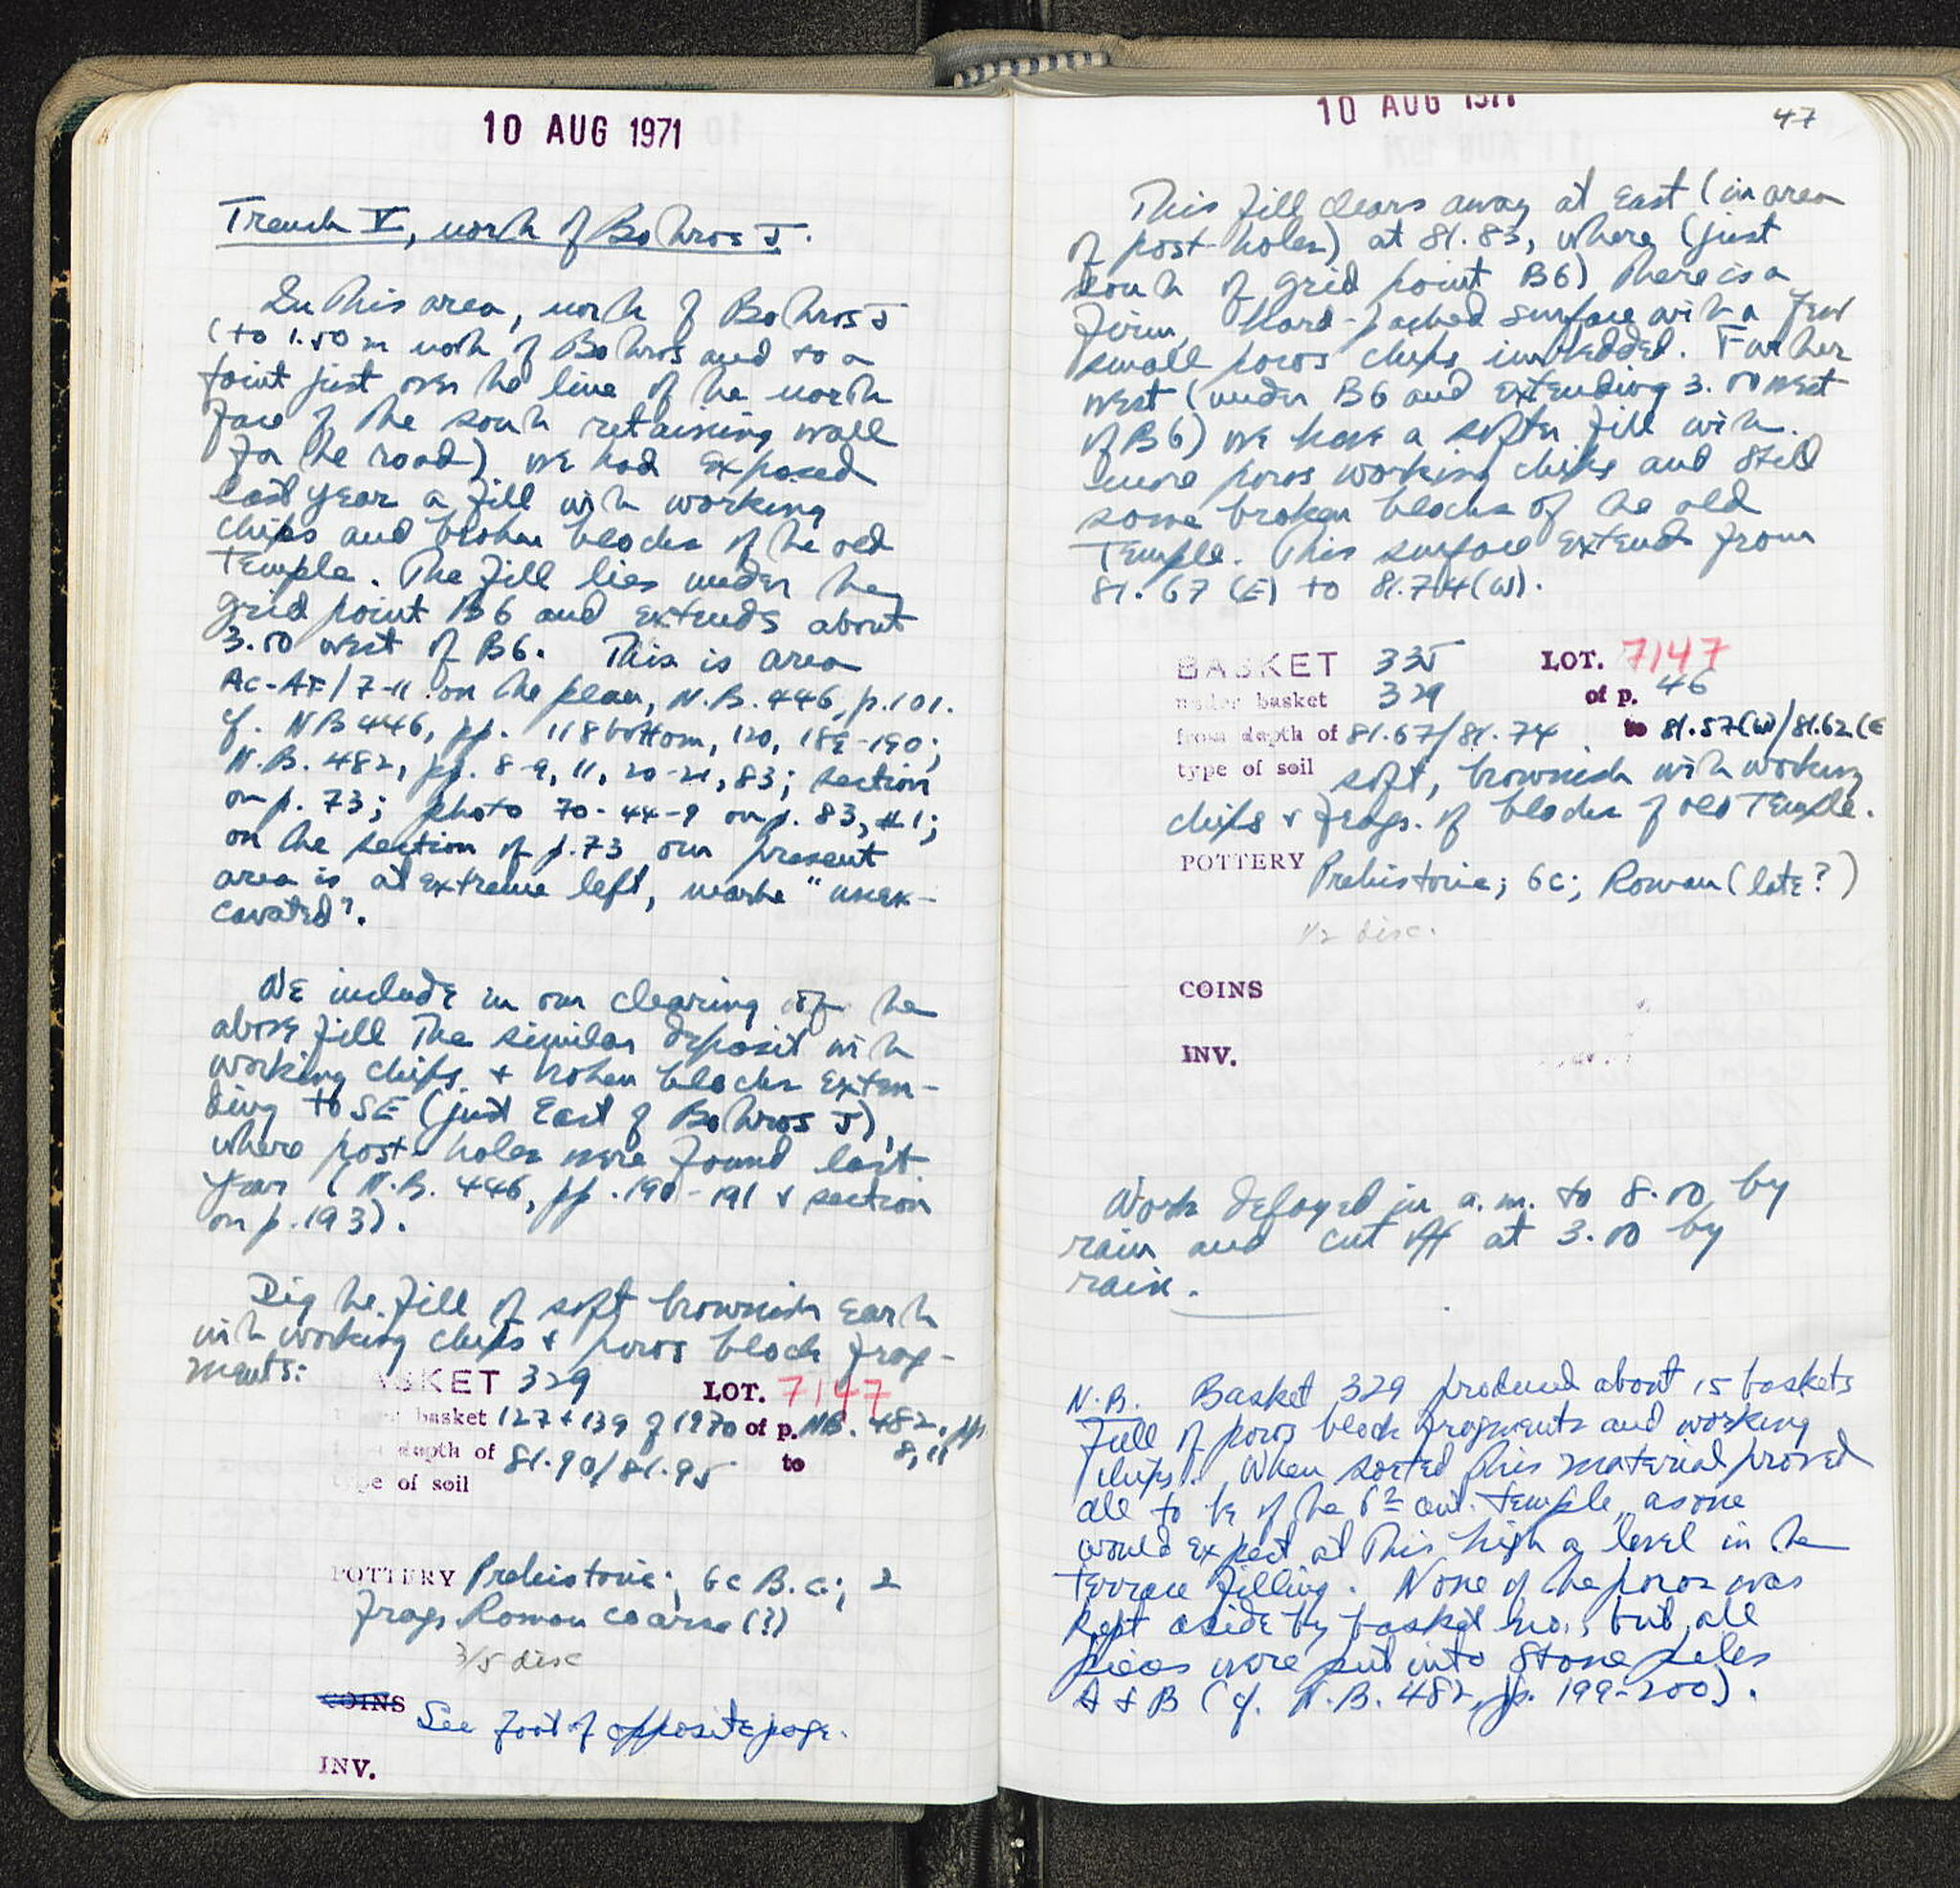 10 AUG 1971
Trench V, north of Bothros J.
In this area, north of Bothros J
(to 1.50 m north of Bothros and to a
point just over the line of the north
face of the south retaining wall
for the road) we had exposed
last year a fill with working
chips and broken blocks of the old
Temple. The fill lies under the
grid point B6 and extends about
3.00 west of B6. This is area
AC-AF/7-11 on the plan, N.B. 446, p. 101.
cf. NB 446, pp. 118 bottom, 120, 189-190;
N.B. 482, pp. 8-9, 11, 20-21, 83; section
on p. 73; photo 70-44-9 on p. 83, #1;
on the section of p. 73 our present
area is at extreme left, marke "unex-
cavated".
We include in our clearing of the
above fill the similar deposit with
working chips + broken blocks exten-
ding to SE (just East of Bothros J),
where post-holes were found last
year (N.B. 446, pp. 190-191 & section
on p. 193).
Dig the fill of soft brownish earth
with working chips & poros block frag-
ments:
BASKET 329 LOT. 7147
under basket 127 + 139 of 1970 of p. NB. 482, pp.
8, 11
from depth of 81.90/81.95 to
type of soil
POTTERY Prehistoric; 6c B.C.; 2
frags Roman coarse (?)
3/5 disc
COINS See foot of opposite page.
INV.
10 AUG 1971
47
This fill clears away at East (in area
of post-holes) at 81.83, where (just
south of grid point B6) there is a
firm, hard-packed surface with a few
small poros chips imbedded. Farther
west (under B6 and extending 3.00 west
of B6) we have a softer fill with
more poros working chips and still
some broken blocks of the old
Temple. This surface extends from
81.67 (E) to 81.74 (W).
BASKET 335 LOT. 7147
under basket 329 of p. 46
from depth of 81.67/81.74 to 81.57(W)/81.62(E
type of soil soft, brownish with working
chips & frags. of blocks of old Temple.
POTTERY Prehistoric; 6c; Roman (late?)
1/2 disc.
COINS
INV.
Work delayed in a.m. to 8.00 by
rain and cut off at 3.00 by
rain.
N.B. Basket 329 produced about 15 baskets
full of poros block fragments and working
chips. When sorted this material proved
all to be of the 6th cent. temple, as one
would expect at this high a level in the
terrace filling. None of the poros was
kept aside by basket no., but all
pieces were put into Stone piles
A & B (cf. N.B. 482, pp. 199-200).